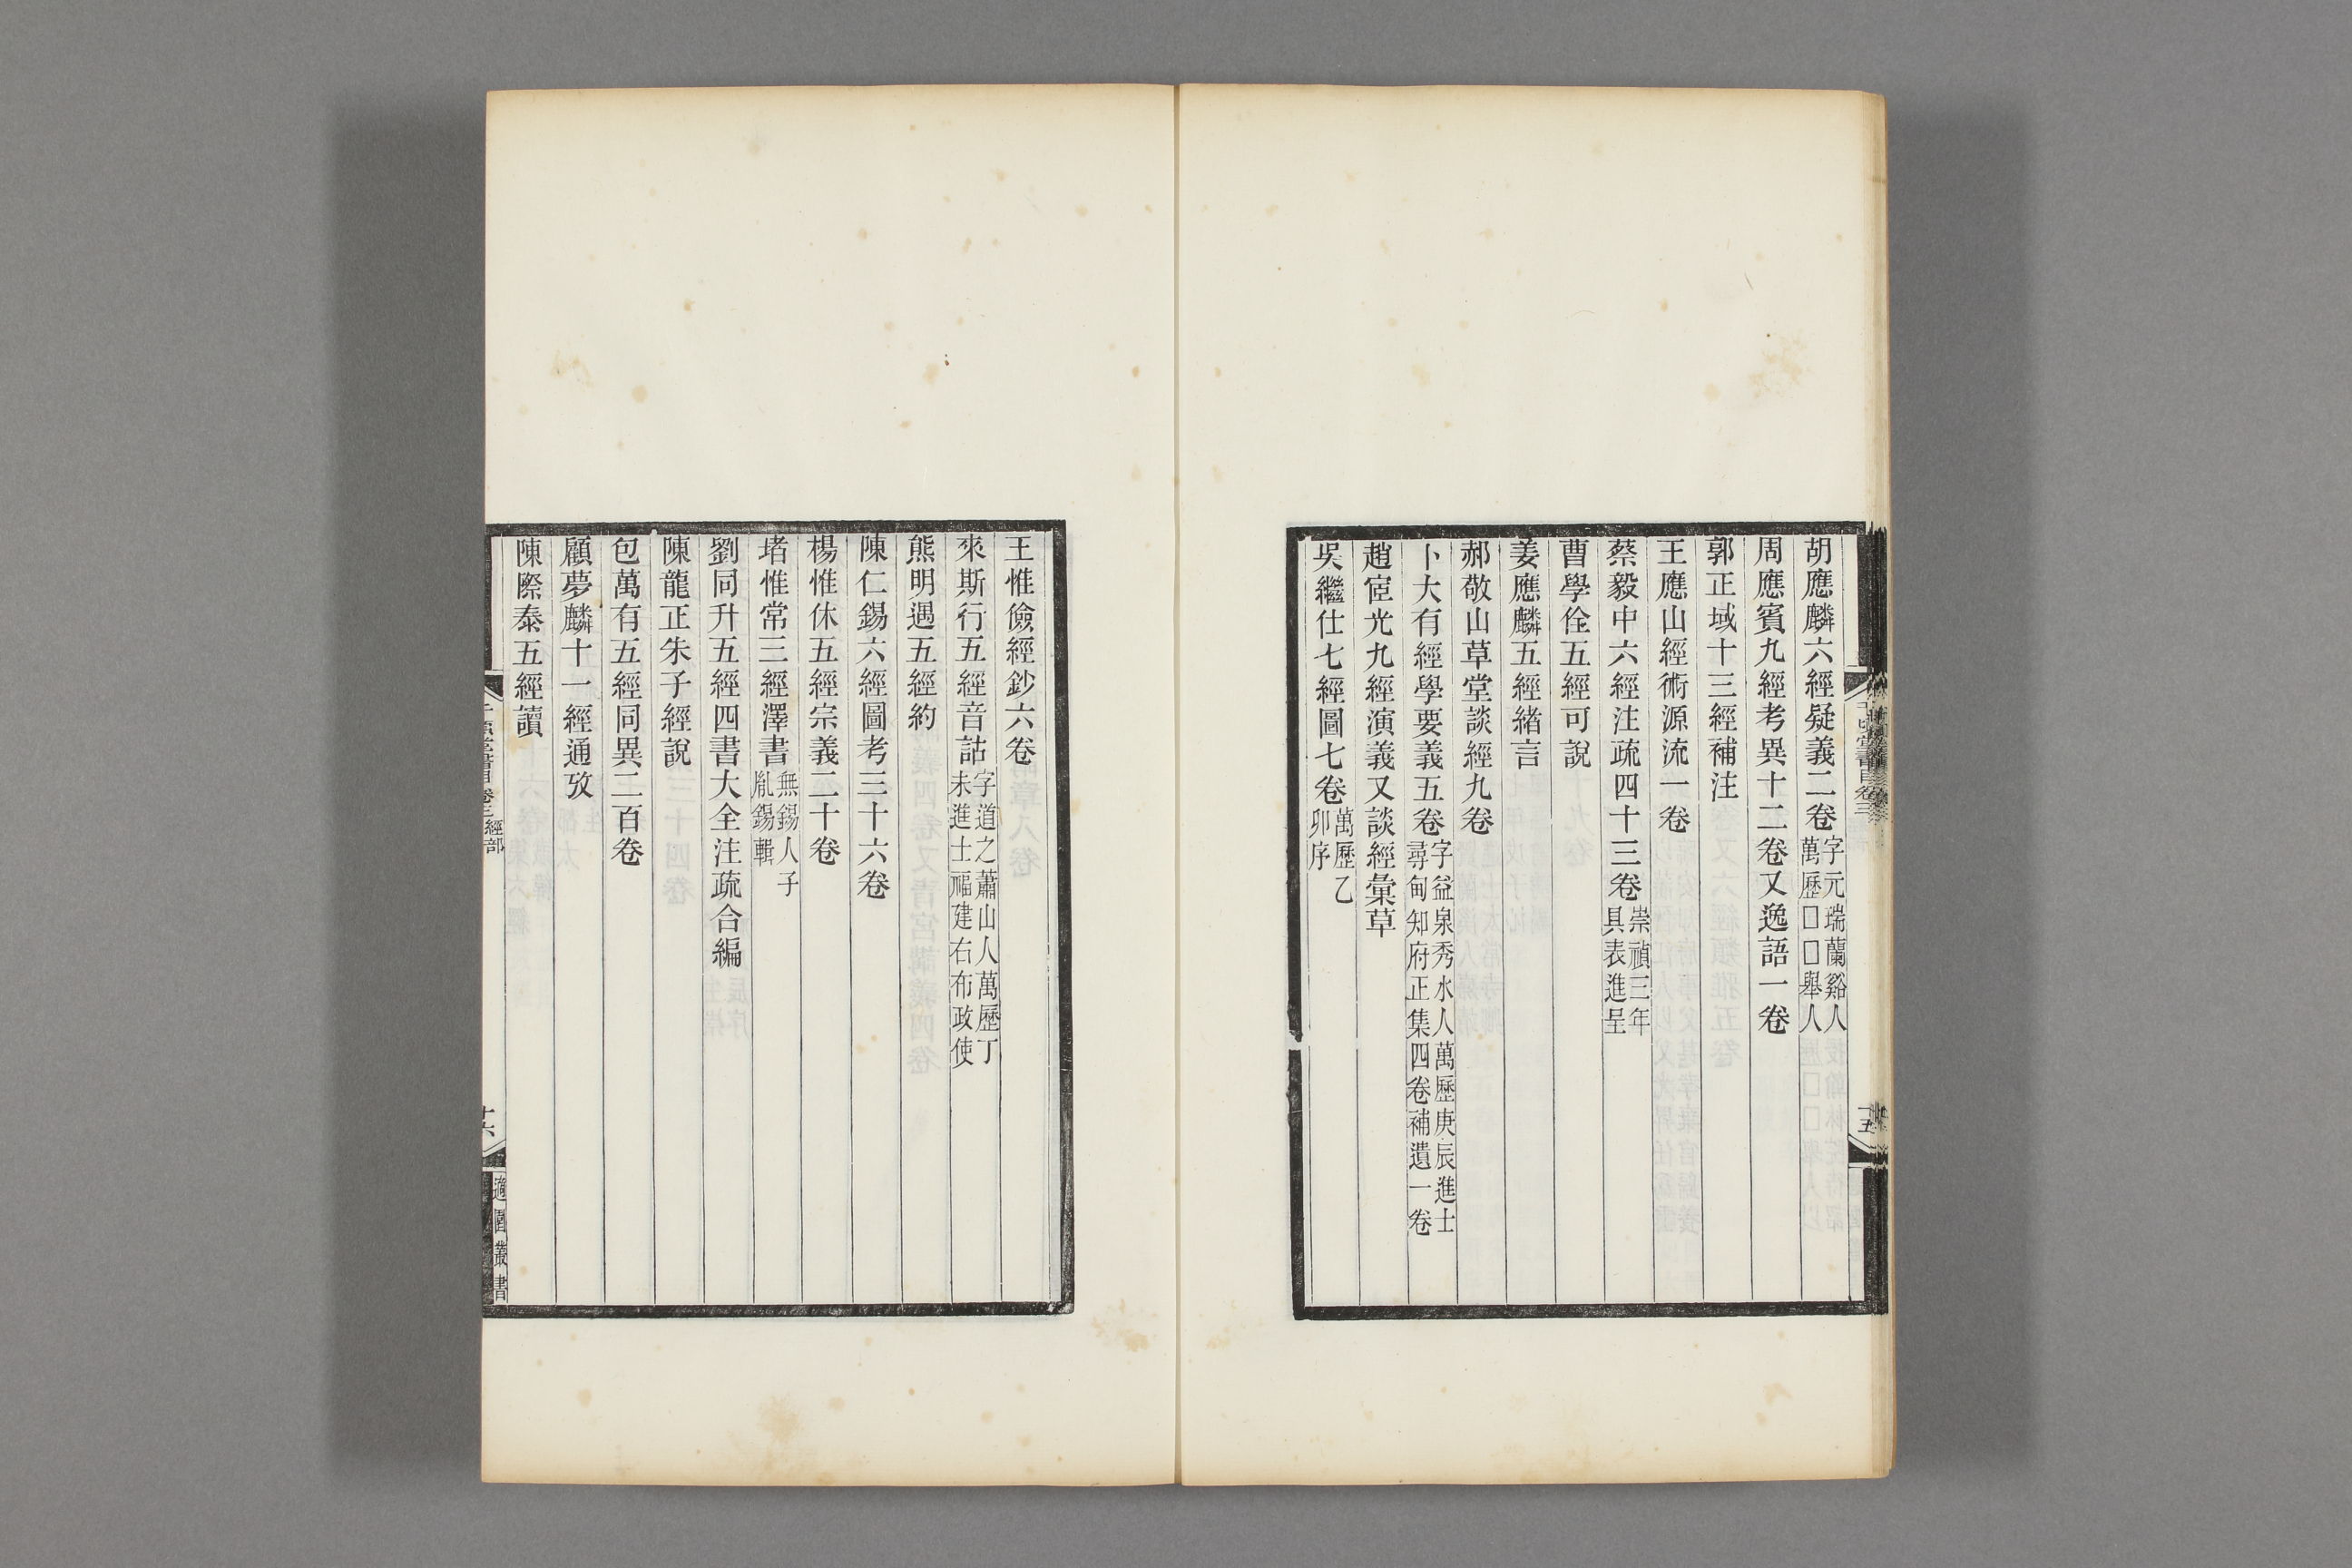 胡應麟六經疑義二卷字元瑞蘭谿人萬歷□□舉人
周應賓九經考異十二卷又逸語一卷
郭正域十三經補注
王應山經術源流一卷
蔡毅中六經注疏四十三卷崇禎三年具表進呈
曹學佺五經可說
姜應麟五經緒言
郝敬山草堂談經九卷
卜大有經學要義五卷字益泉秀水人萬歷庚辰進士尋甸知府正集四卷補遺一卷
趙宧光九經演義又談經彙草
吳繼仕七經圖七卷萬歷乙卯序
王惟儉經鈔六卷
來斯行五經音詁字道之蕭山人萬歷丁未進士福建右布政使
熊明遇五經約
陳仁錫六經圖考三十六卷
楊惟休五經宗義二十卷
堵惟常三經澤書無錫人子胤錫輯
劉同升五經四書大全注疏合編
陳龍正朱子經說
包萬有五經同異二百卷
顧夢麟十一經通攷
陳際泰五經讀
千頃堂書目卷三經部
十六
適園叢書